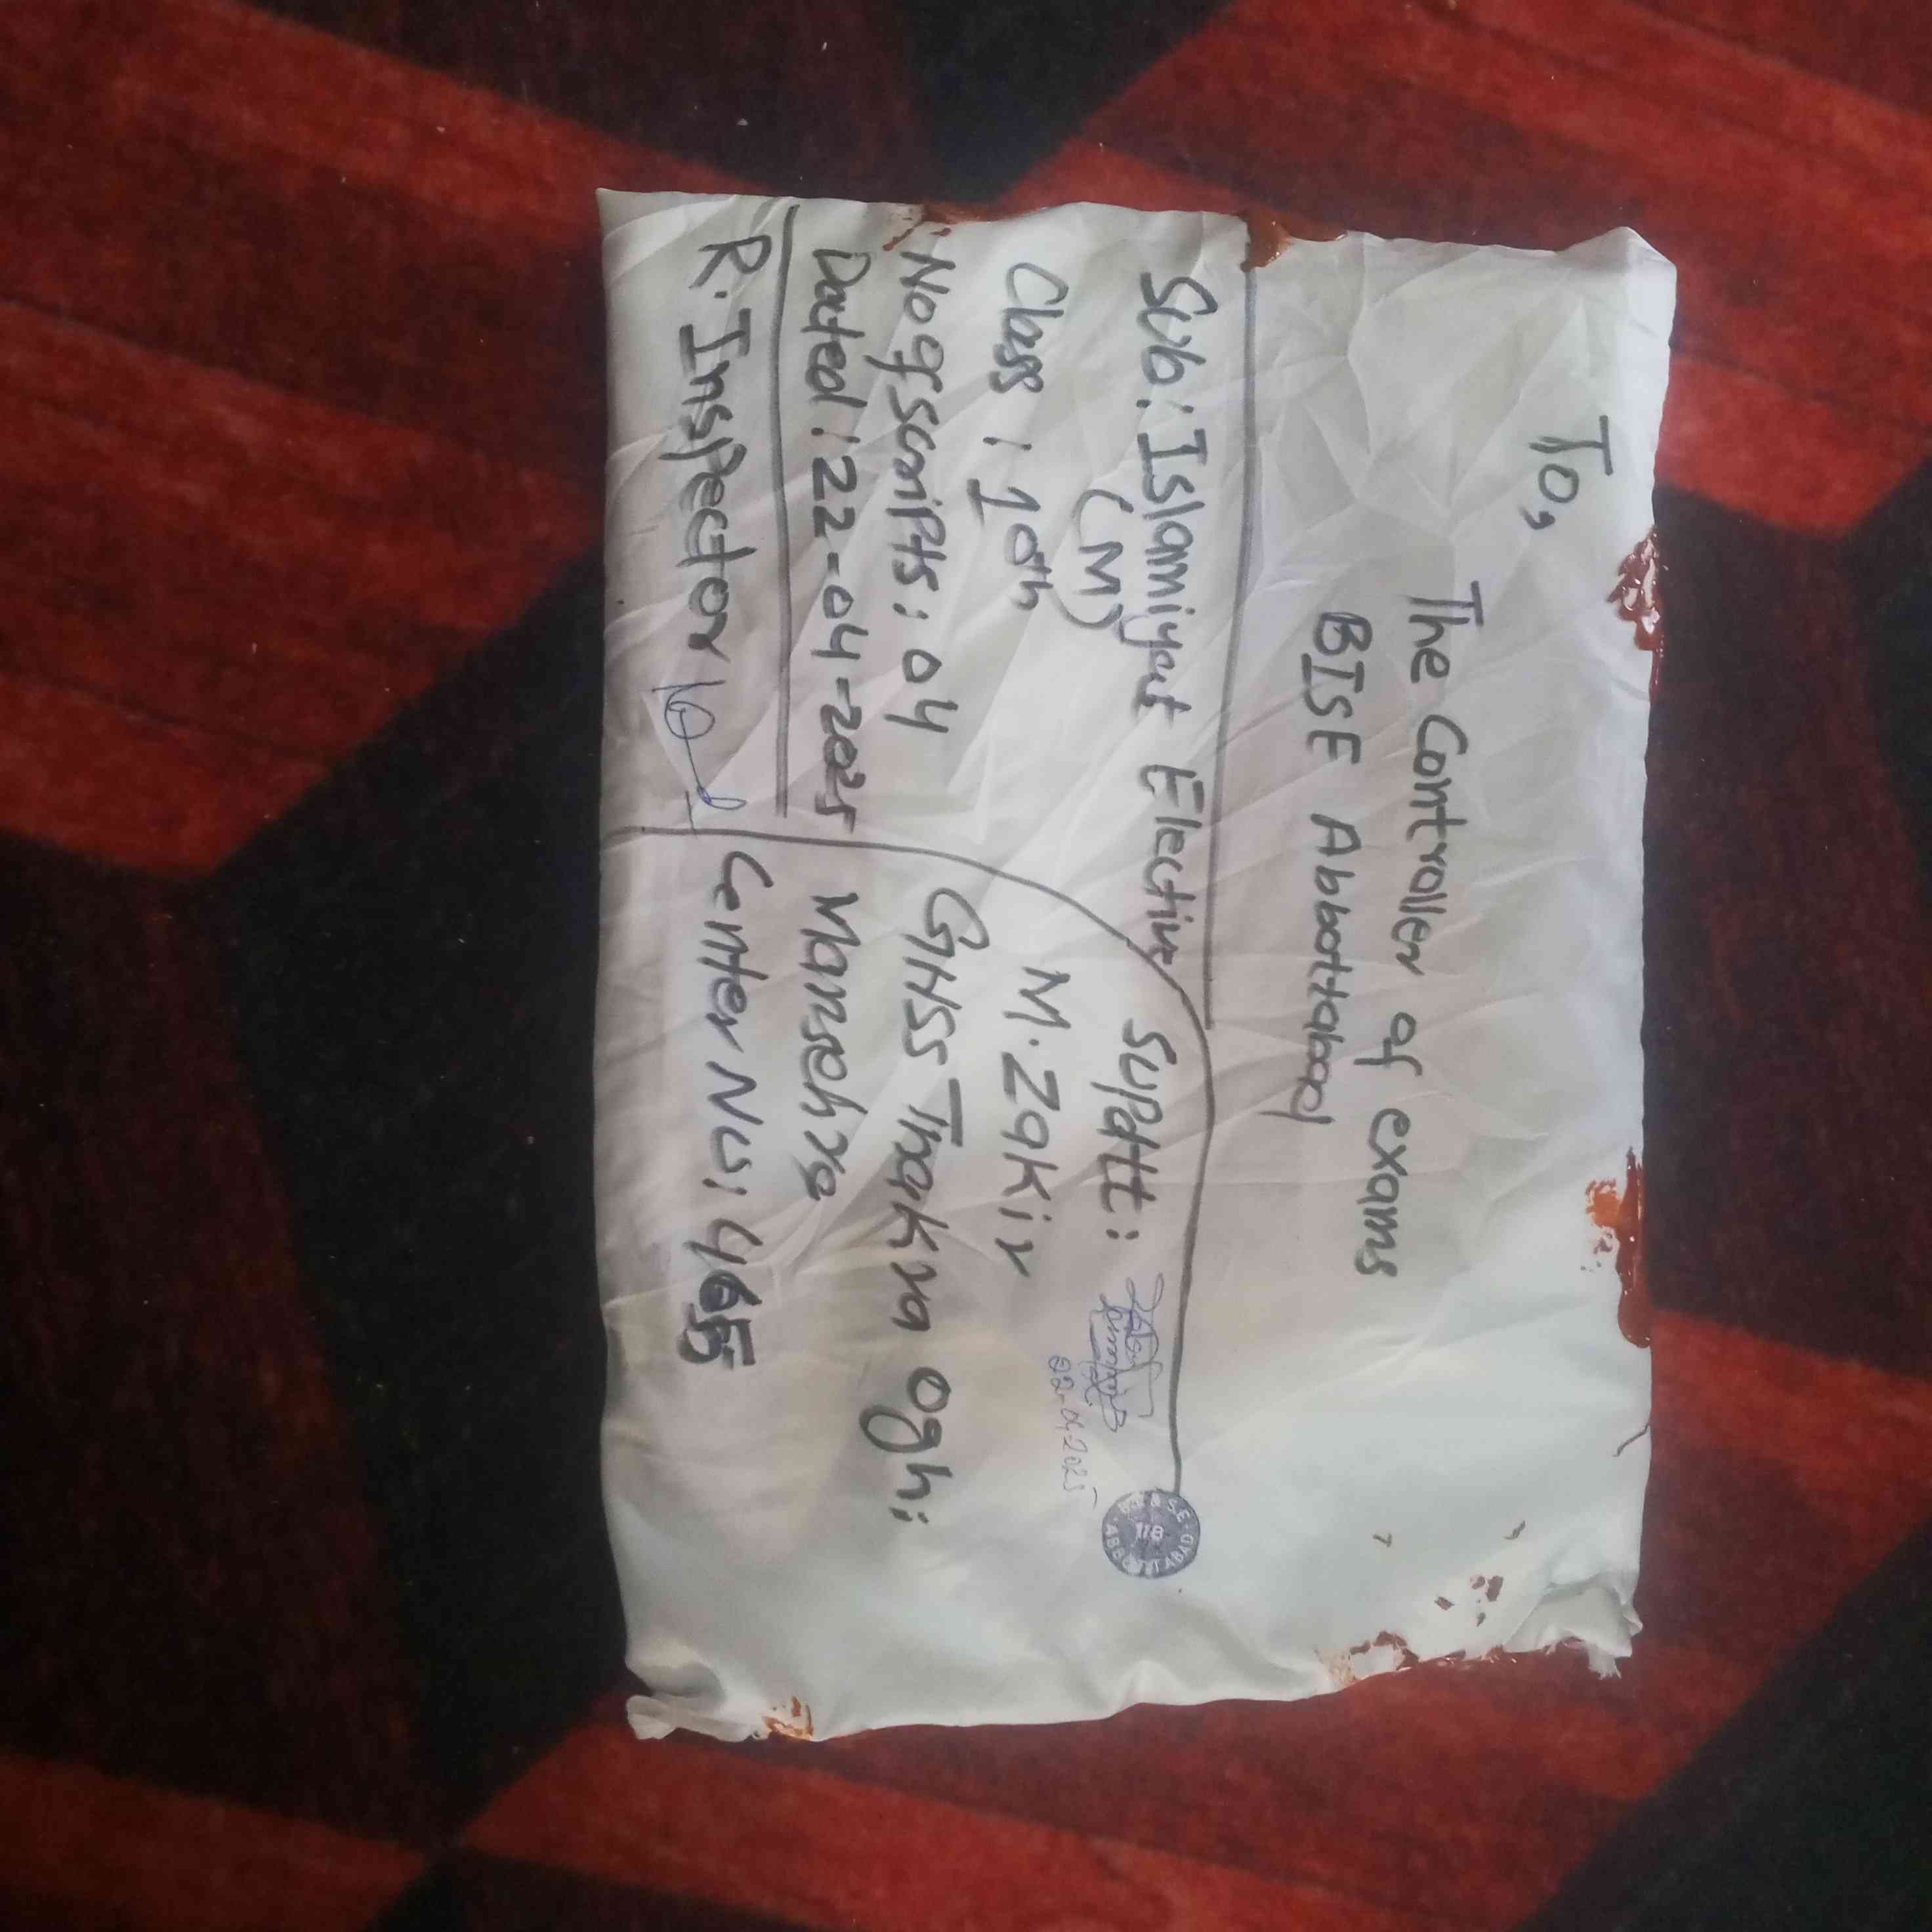 To,
The Controller of exams
BISE Abbottabad
Sub: Islamiyat Elective
(M)
Class : 10th
No of scripts: 04
Dated: 22-04-2025
R. Inspector
Supdtt:
M. Zakir
GHSS Thakra Oghi
Mansehra
Center No: 465
22-04-2025
B.I. & S.E.
118
ABBOTTABAD